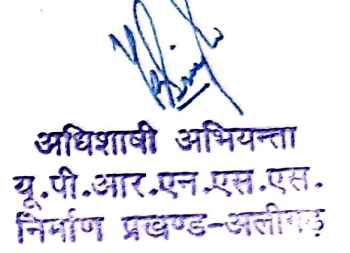 अधिशाषी अभियन्ता
यू.पी.आर.एन.एस.एस.
निर्माण प्रखण्ड-अलीगढ़